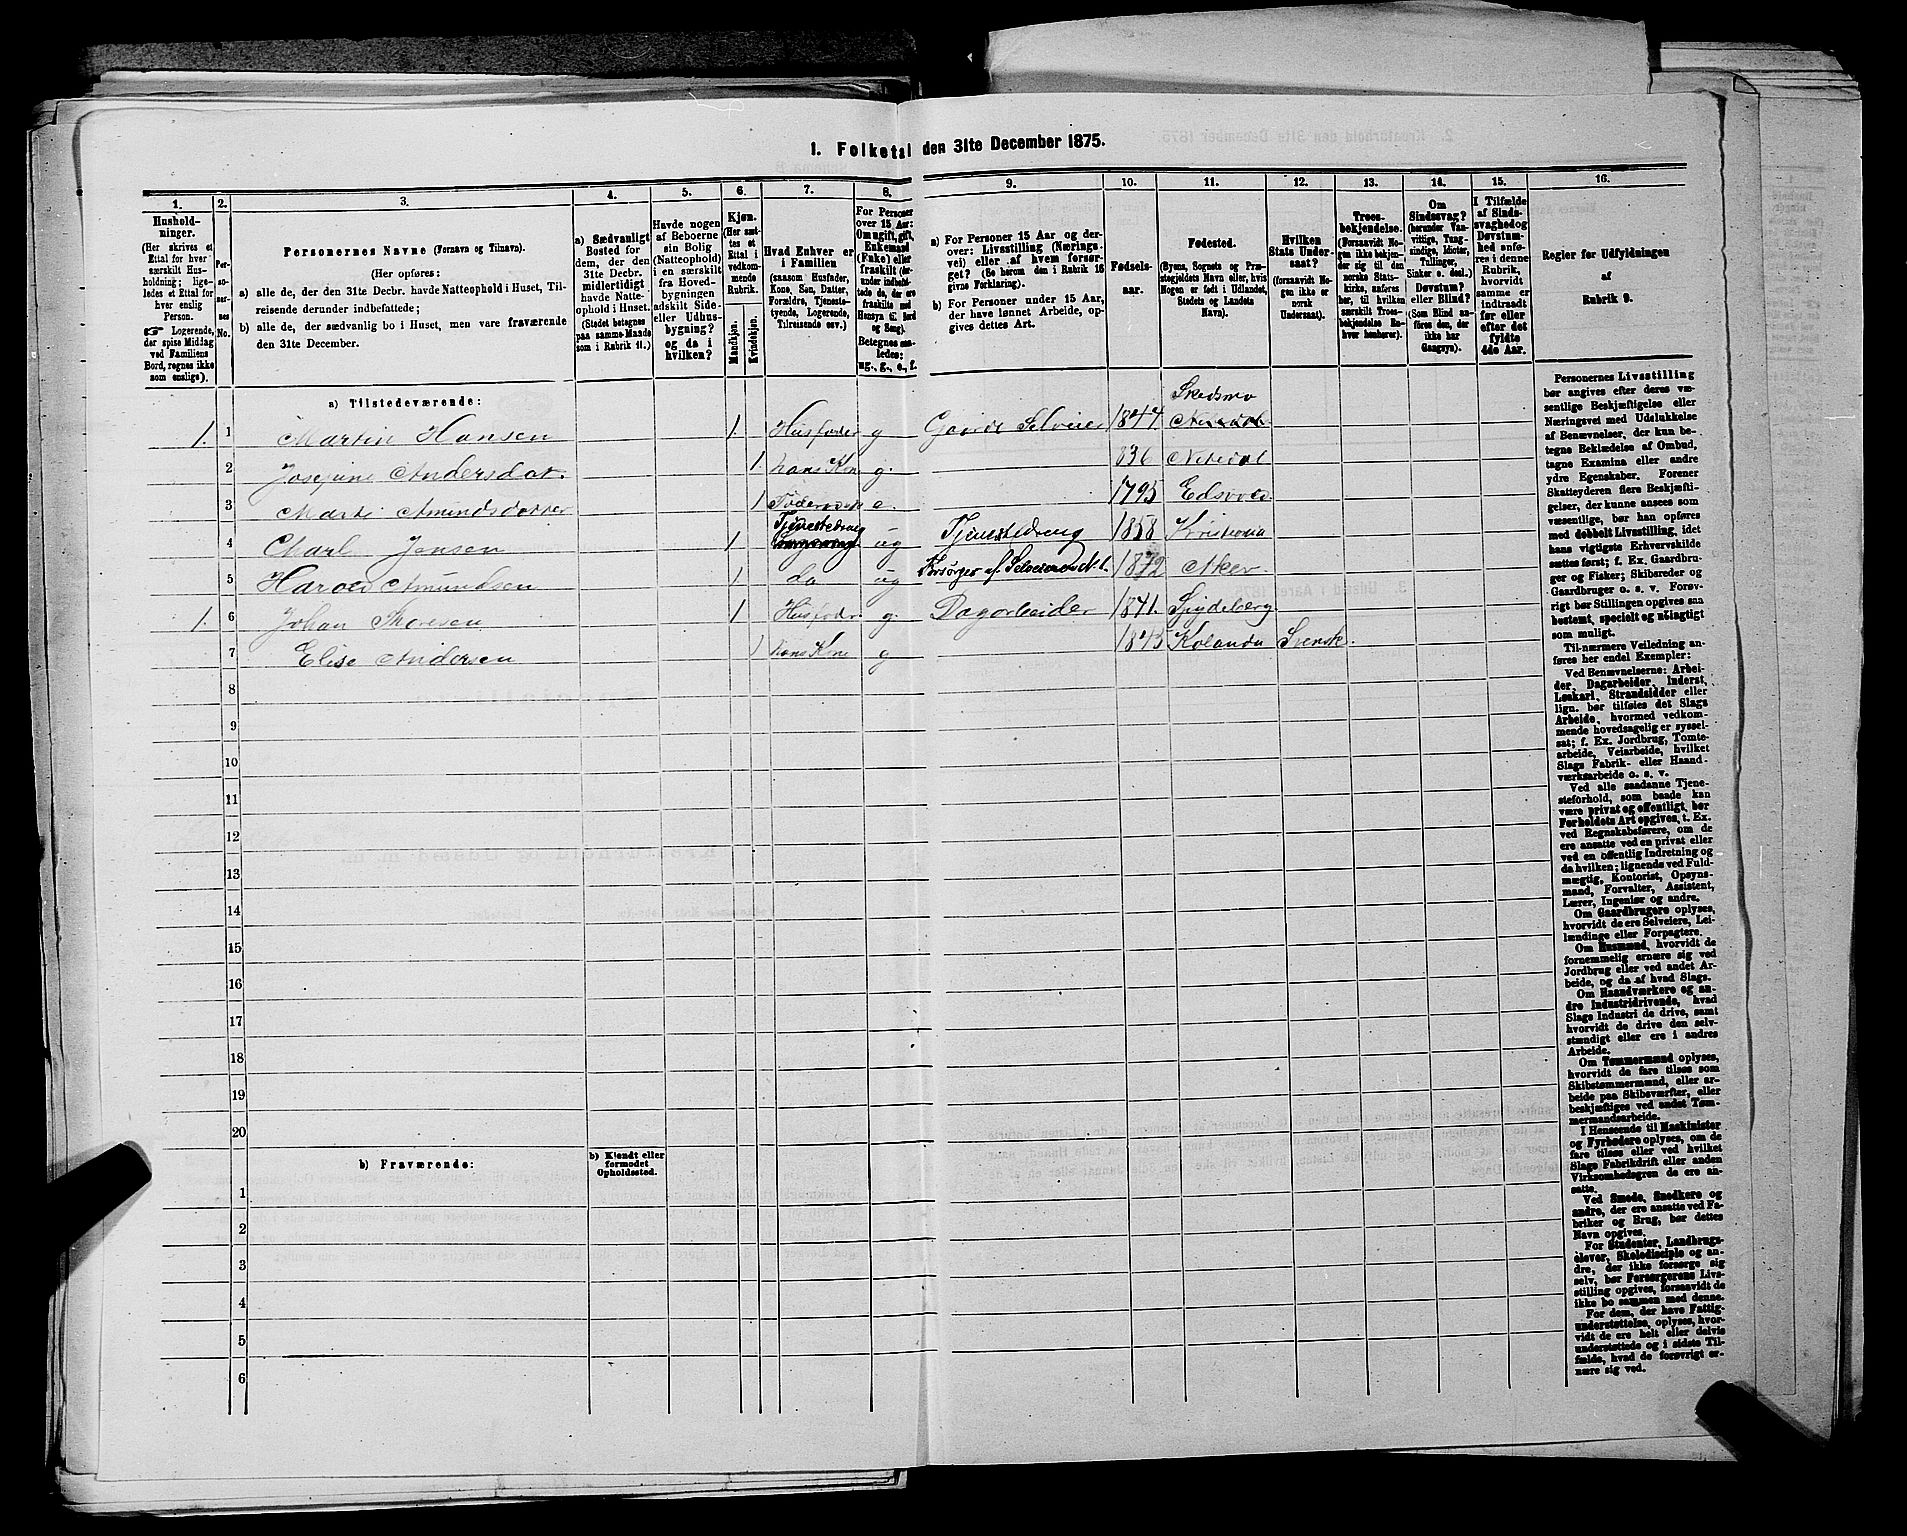 1. Folketal den 31te December 1875.
1.
2.
3.
4.
5.
6.
7.
8.
9.
10.
11.
12.
13.
14.
15.
16.
Hushold-
ninger.
(Her skrives et
Ettal for hver
særskilt Hus-
holdning; lige-
ledes et Ettal for
hver enslig
Person.
☞ Logerende,
der spise Middag
ved Familiens
Bord, regnes ikke
som enslige).
Per-
so-
ner-
nes
No.
Personernes Navne (Fornavn og Tilnavn).
(Her opføres:
a) alle de, der den 31te Decbr. havde Natteophold i Huset, Til-
reisende derunder indbefattede;
b) alle de, der sædvanlig bo i Huset, men vare fraværende
den 31te December.
a) Sædvanligt
Bosted for
dem, der den
31te Decbr.
midlertidigt
havde Natte-
ophold i Huset.
(Stedet betegnes
paa samme Maade
som i Rubrik 11.)
Havde nogen
af Beboerne
sin Bolig
(Natteophold)
i en særskilt
fra Hoved-
bygningen
adskilt Side-
eller Udhus-
bygning?
og da i
hvilken?
Kjøn.
(Her sæt-
tes et
Ettal i
vedkom-
mende
Rubrik.
Mandkjøn.
Kvindekjøn.
Hvad Enhver er
i Familien
(saasom Husfader,
Kone, Søn, Datter,
Forældre, Tjeneste-
tyende, Logerende,
Tilreisende osv.)
For Personer
over 15 Aar:
Om ugift, gift,
Enkemand
(Enke) eller
fraskilt (der-
under indbefat-
tede de, der ere
fraskilte med
Hensyn til Bord
og Seng).
Betegnes saa-
ledes:
ug., g., e., f.
a) For Personer 15 Aar og der-
over: Livsstilling (Nærings-
vei) eller af hvem forsør-
get? (Se herom den i Rubrik 16
givne Forklaring).
b) For Personer under 15 Aar,
der have lønnet Arbeide, op-
gives dettes Art.
Fødsels-
aar.
Fødested.
(Byens, Sognets og Præ-
stegjeldets Navn eller, hvis
Nogen er født i Udlandet,
Stedets og Landets
Navn).
Hvilken
Stats Under-
saat?
(forsaavidt No-
gen ikke er
norsk
Undersaat).
Troes-
bekjendelse.
(Forsaavidt No-
gen ikke bekjen-
der sig til den
norske Stats-
kirke, anføres
her, til hvilken
særskilt Troes-
bekjendelse En-
hver henhører).
Om
Sindssvag?
(herunder Van-
vittige, Tung-
sindige, Idioter,
Tullinger,
Sinker o. desl.)
Døvstum?
eller Blind?
(Som Blind an-
føres den, der
ikke har
Gangsyn).
I Tilfælde
af Sinds-
svaghed og
Døvstum-
hed anfø-
res i denne
Rubrik,
hvorvidt
samme er
indtraadt
før eller
efter det
fyldte
4de Aar.
Regler for Udfyldningen
af
Rubrik 9.
a) Tilstedeværende:
1. 1 Martin Hansen 1. Husfader g Gaardb Selveier 1844 Skedsmo Nitedal
2 Josefine Andersdat. 1. hans Kone g. 836 Nitedal
3 Marti Amundsdatter 1 e. 1795 Edsvold
4 Charl Jensen 1 Tjenestedreng ug Tjenestedreng 1858 Kristiania
5 Harold Amundsen 1 do ug Forsørges af Selveieren N 1. 1872 Aker.
1. 6 Johan Thoresen 1 Husfader g. Dagarbeider 1841. Spydeberg
7 Elise Andersen 1 hans Kone g 1845 Kolanda Svensk.
8
9
10
11
12
13
14
15
16
17
18
19
20
b) Fraværende:
b) Kjendt eller
formodet
Opholdssted.
1
2
3
4
5
6
Personernes Livsstilling
bør angives efter deres væ-
sentlige Beskjæftigelse eller
Næringsvei med Udelukkelse
af Benævnelser, der kun be-
tegne Bekladelse af Ombud,
tagne Examina eller andre
ydre Egenskaber. Forener
Skatteyderen flere Beskjæfti-
gelser, der kunne ansees som
væsentlige, bør han opføres
med dobbelt Livsstilling, idet
hans vigtigste Erhvervskilde
sættes først; f. Ex. Gaardbru-
ger og Fisker; Skibsreder og
Gaardbruger o. s. v. Forøv-
rigt bør Stillingen opgives saa
bestemt, specielt og nøiagtigt
som muligt.
Til nærmere Veiledning an-
føres her endel Exempler:
Ved Benævnelserne: Arbei-
der, Dagarbeider, Inderst,
Løskarl, Strandsidder eller
lign. bør tilføies det Slags
Arbeide, hvormed vedkom-
mende hovedsagelig er syssel-
sat; f. Ex. Jordbrug, Tomte-
arbeide, Veiarbeide, hvilket
Slags Fabrik- eller Haand-
værksarbeide o. s. v.
Ved alle saadanne Tjene-
steforhold, som baade kan
være privat og offentligt, bør
Forholdets Art opgives, t. Ex.
ved Regnskabsførere, om de
ere ansatte ved en privat eller
ved en offentlig Indretning og
da hvilken; lignende ved Fuld-
mægtig, Kontorist, Opsyns-
mand, Forvalter, Assistent,
Lærer, Ingeniør og andre.
Om Gaardbrugere oplyses,
hvorvidt de ere Selveiere, Lei-
lændinge eller Forpagtere.
Om Husmænd, hvorvidt de
fornemmelig ernære sig ved
Jordbrug eller ved andet Ar-
beide, og da af hvad Slags.
Om Haandværkere og an-
dre Industridrivende, hvad
Slags Industri de drive, samt
hvorvidt de drive den selv-
stændigt eller ere i andres
Arbeide.
Om Tømmermænd oplyses,
hvorvidt de fare tilsøs som
Skibstømmermænd, eller ar-
beide paa Skibsværfter, eller
beskjæftiges ved andet Tøm-
mermandsarbeide.
I Henseende til Maskinister
og Fyrbødere oplyses, om de
fare tilsøs eller ved hvilket
Slags Fabrikdrift eller anden
Virksomhedsgren de ere an-
satte.
Ved Smede, Snedkere og
andre, der ere ansatte ved Fa-
briker og Brug, bør dettes
Navn opgives.
For Studenter, Landbrugs-
elever, Skoledisciple og an-
dre, der ikke forsørge sig
selv, bør Forsørgerens Livs-
stilling opgives, forsaavidt de
ikke bo sammen med denne.
For dem, der have Fattig-
understøttelse, oplyses, hvor-
vidt de ere helt eller delvis
understøttede og i sidste Til-
fælde, hvad de forøvrigt er-
nære sig ved.